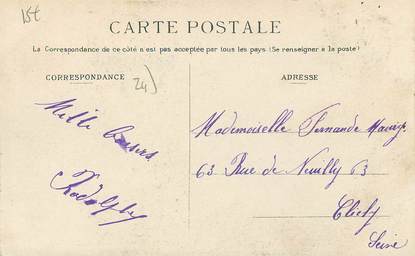 15€
CARTE POSTALE
La Correspondance de ce côté n'est pas acceptée par tous les pays (Se renseigner à la poste)
CORRESPONDANCE
ADRESSE
24)
Mille baisers
Rodolphe
Mademoiselle Fernande
63 Rue de Neuilly 63
Clichy
Seine